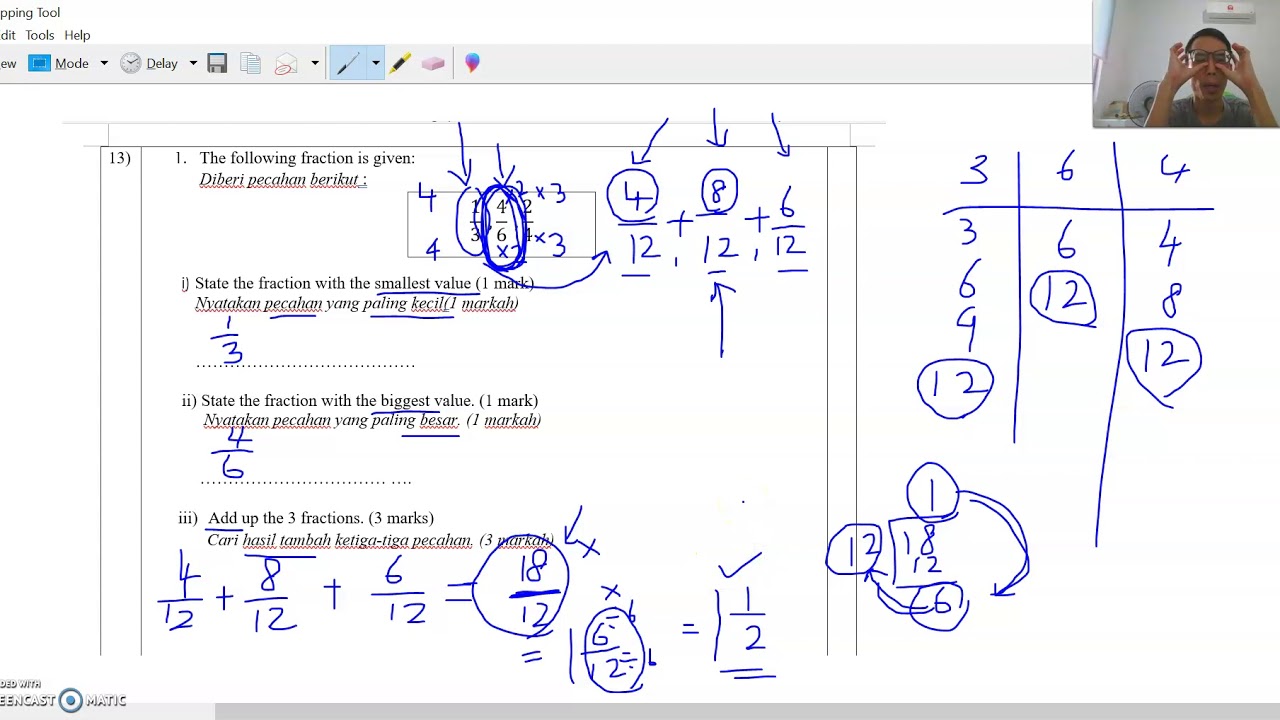 pping Tool
dit Tools Help
ew Mode Delay
13) 1. The following fraction is given:
Diberi pecahan berikut :
4 1/3 4/6 2/4 ×2 ×3
4 ×2 ×3
4/12 + 8/12 + 6/12
i) State the fraction with the smallest value (1 mark)
Nyatakan pecahan yang paling kecil(1 markah)
1/3
………………………………….
ii) State the fraction with the biggest value. (1 mark)
Nyatakan pecahan yang paling besar. (1 markah)
4/6
…………………………… ….
iii) Add up the 3 fractions. (3 marks)
Cari hasil tambah ketiga-tiga pecahan. (3 markah)
4/12 + 8/12 + 6/12 = 18/12 ×
= 1 6÷6/12÷6 × = 1 1/2 ✓
3 6 4
3 6 4
6 12 8
9 12
12
1
12 18
12
6
DED WITH
REENCAST MATIC